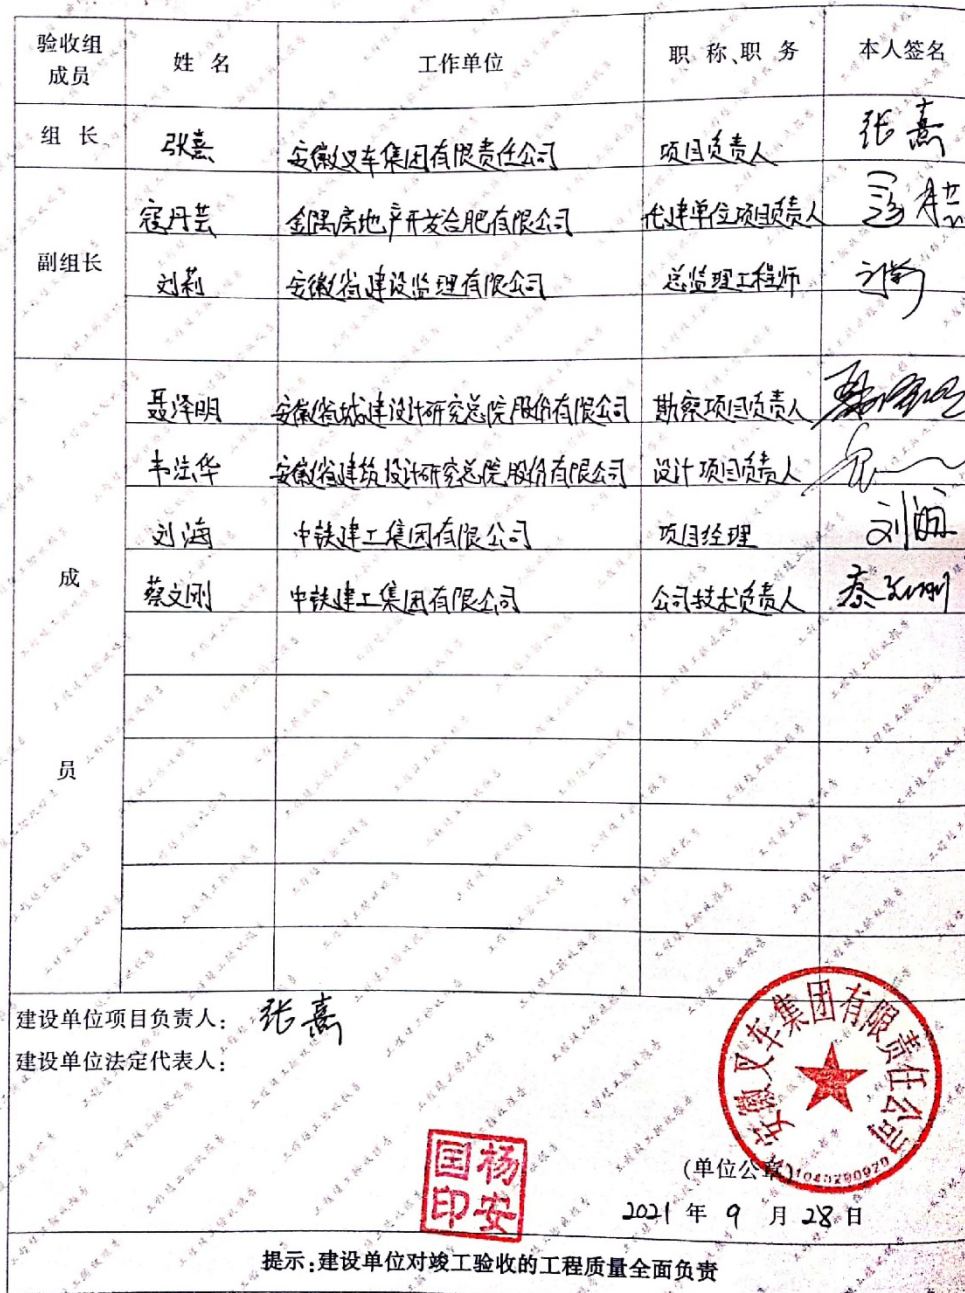 验收组成员 姓 名 工作单位 职 称、职 务 本人签名
组 长 张熹 安徽叉车集团有限责任公司 项目负责人 张熹
副组长
寇丹芸 金隅房地产开发合肥有限公司 代建单位项目负责人
刘莉 安徽省建设监理有限公司 总监理工程师 刘莉
成员
聂泽明 安徽省城建设计研究总院股份有限公司 勘察项目负责人
韦法华 安徽省建筑设计研究总院股份有限公司 设计项目负责人
刘海 中铁建工集团有限公司 项目经理 刘海
蔡文刚 中铁建工集团有限公司 公司技术负责人 蔡文刚
建设单位项目负责人: 张熹
建设单位法定代表人:
安徽叉车集团有限责任公司
杨安国印
(单位公章)
2021 年 9 月 28 日
提示:建设单位对竣工验收的工程质量全面负责
工程竣工验收报告